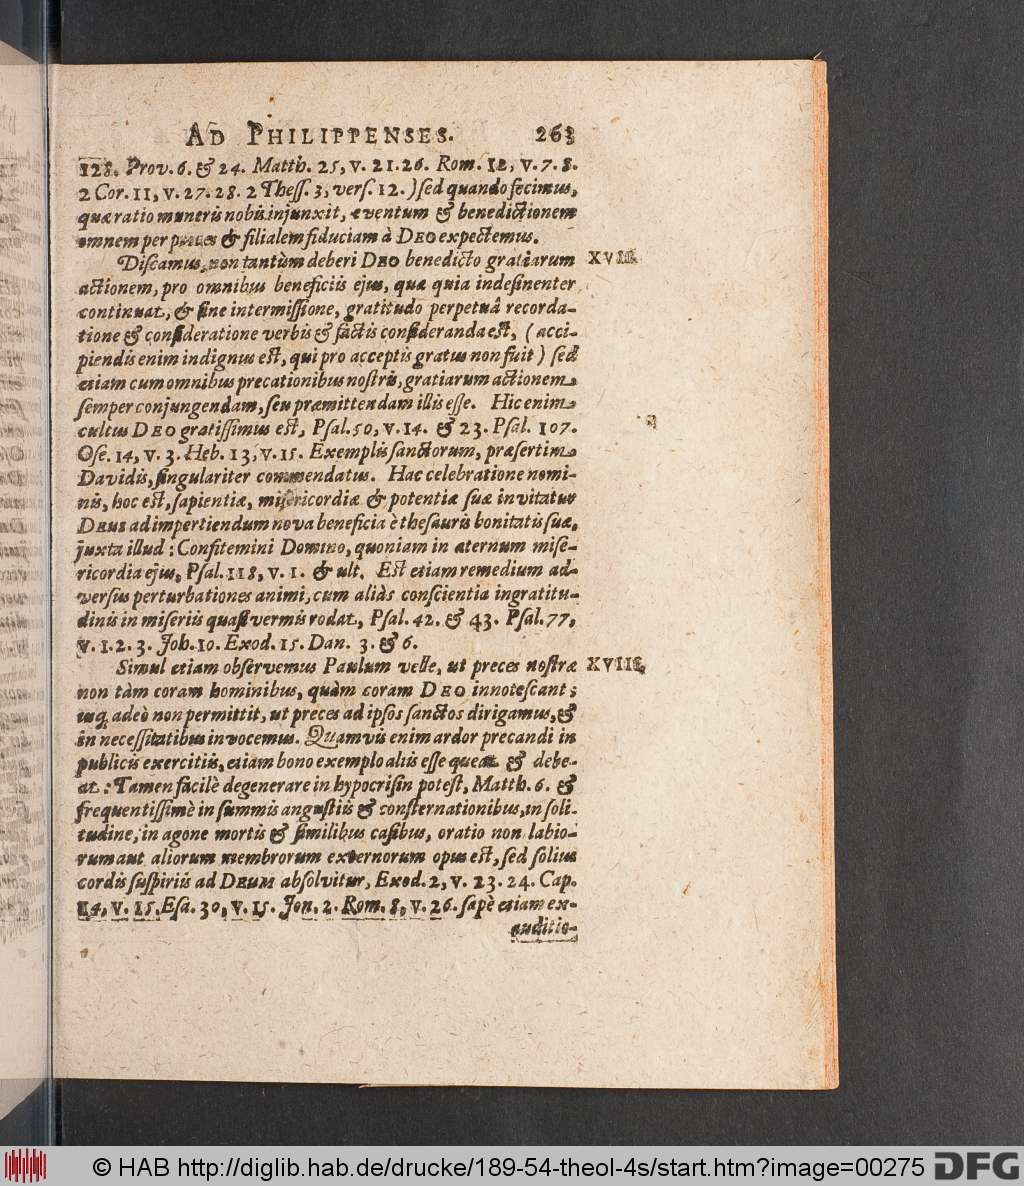 AD PHILIPPENSES. 263
128. Prov. 6. & 24. Matth. 25, v. 21. 26. Rom. 12, v. 7. 8.
2 Cor. 11, v. 27. 28. 2 Theſſ. 3, verſ. 12. ) ſed quando fecimus,
quæ ratio muneris nobis injunxit, eventum & benedictionem
omnem per preces & filialem fiduciam à DEO expectemus.
Diſcamus, non tantùm deberi DEO benedicto gratiarum XVII.
actionem, pro omnibus beneficiis ejus, quæ quia indeſinenter
continuat, & ſine intermiſſione, gratitudo perpetuâ recorda-
tione & conſideratione verbis & factis conſideranda eſt, ( acci-
piendis enim indignus eſt, qui pro acceptis gratus non fuit ) ſed
etiam cum omnibus precationibus noſtris, gratiarum actionem
ſemper conjungendam, ſeu præmittendam illis eſſe. Hic enim
cultus DEO gratiſſimus eſt, Pſal. 50, v. 14. & 23. Pſal. 107.
Oſe. 14, v. 3. Heb. 13, v. 15. Exemplis ſanctorum, præſertim
Davidis, ſingulariter commendatus. Hac celebratione nomi-
nis, hoc eſt, ſapientiæ, miſericordiæ & potentiæ ſuæ invitatur
DEUS ad impertiendum nova beneficia è theſauris bonitatis ſuæ,
juxta illud : Confitemini Domino, quoniam in æternum miſe-
ricordia ejus, Pſal. 118, v. 1. & ult. Eſt etiam remedium ad-
verſus perturbationes animi, cum aliàs conſcientia ingratitu-
dinis in miſeriis quaſi vermis rodat, Pſal. 42. & 43. Pſal. 77,
v. 1. 2. 3. Job. 10. Exod. 15. Dan. 3. & 6.
Simul etiam obſervemus Paulum velle, ut preces noſtræ XVIII.
non tàm coram hominibus, quàm coram DEO innoteſcant ;
uſq; adeò non permittit, ut preces ad ipſos ſanctos dirigamus, &
in neceſſitatibus invocemus. Quamvis enim ardor precandi in
publicis exercitiis, etiam bono exemplo aliis eſſe queat & debe-
at : Tamen facilè degenerare in hypocriſin poteſt, Matth. 6. &
frequentiſſimè in ſummis anguſtiis & conſternationibus, in ſoli-
tudine, in agone mortis & ſimilibus caſibus, oratio non labio-
rum aut aliorum membrorum externorum opus eſt, ſed ſolius
cordis ſuſpiriis ad DEUM abſolvitur, Exod. 2, v. 23. 24. Cap.
14, v. 15. Eſa. 30, v. 15. Jon. 2. Rom. 8, v. 26. ſæpè etiam ex-
auditio-
© HAB http://diglib.hab.de/drucke/189-54-theol-4s/start.htm?image=00275 DFG